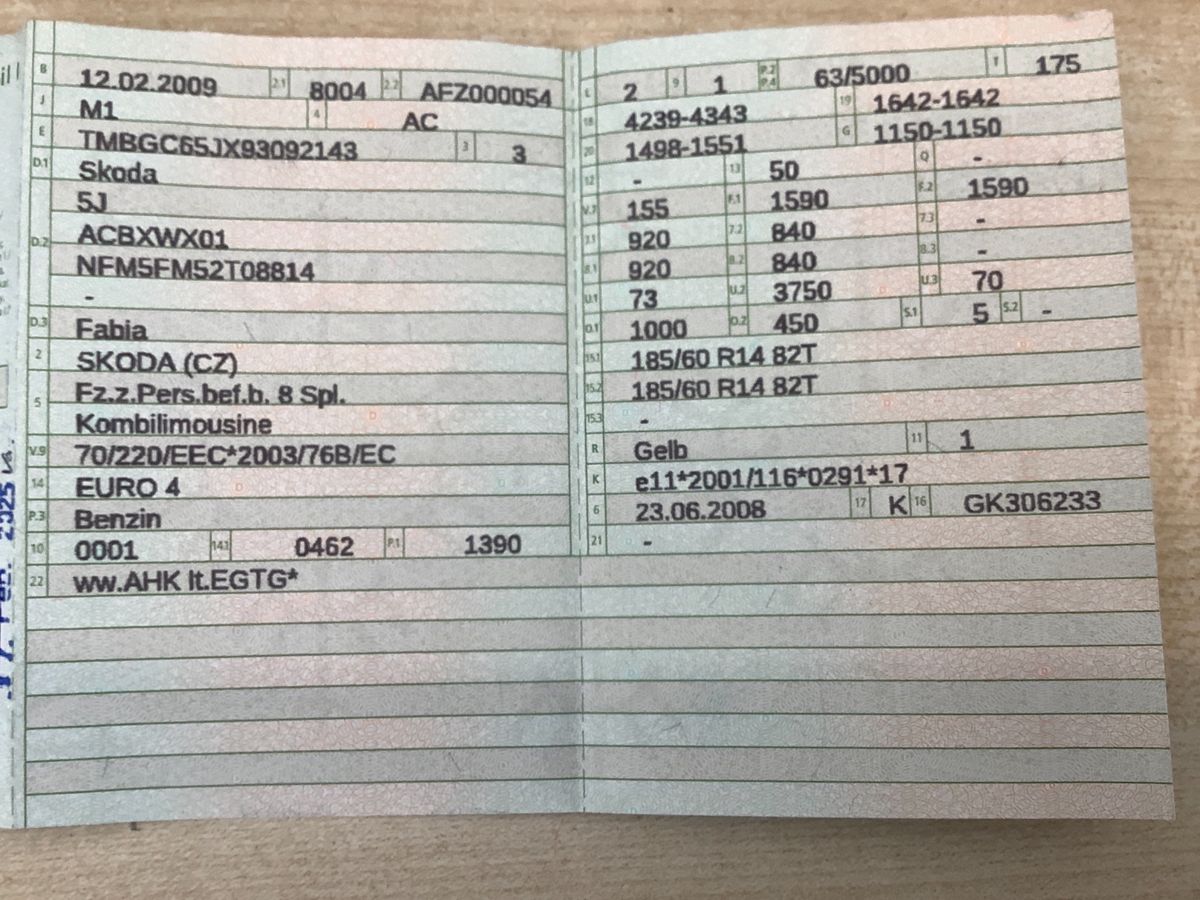 B 12.02.2009 2.1 8004 2.2 AFZ000054
J M1 4 AC
E TMBGC65JX93092143 3 3
D.1 Skoda
5J
D.2 ACBXWX01
NFM5FM52T08814
-
D.3 Fabia
2 SKODA (CZ)
Fz.z.Pers.bef.b. 8 Spl.
5 Kombilimousine
V.9 70/220/EEC*2003/76B/EC
14 EURO 4
P.3 Benzin
10 0001 14.1 0462 P.1 1390
22 ww.AHK lt.EGTG*
L 2 9 1 P.2 P.4 63/5000 T 175
18 4239-4343 19 1642-1642
20 1498-1551 G 1150-1150
12 - 13 50 Q -
V.7 155 F.1 1590 F.2 1590
7.1 920 7.2 840 7.3 -
8.1 920 8.2 840 8.3 -
U.1 73 U.2 3750 U.3 70
O.1 1000 O.2 450 S.1 5 S.2 -
15.1 185/60 R14 82T
15.2 185/60 R14 82T
15.3 -
R Gelb 11 1
K e11*2001/116*0291*17
6 23.06.2008 17 K 16 GK306233
21 -
2025